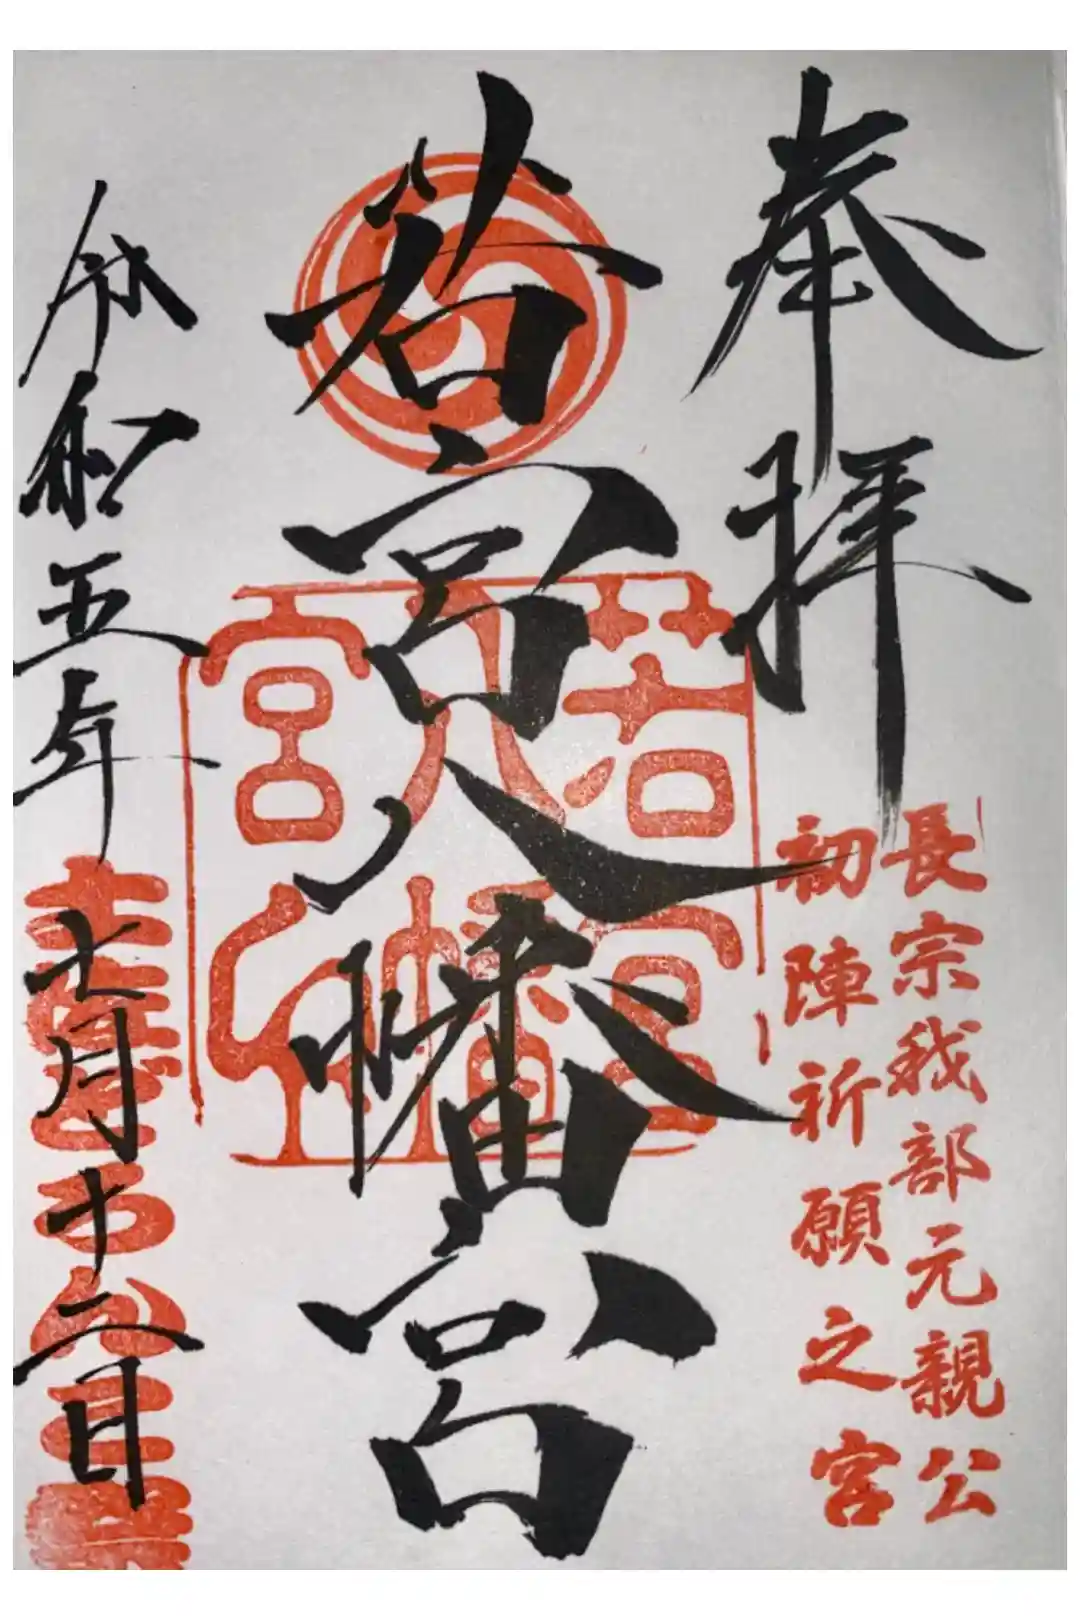 奉拝
長宗我部元親公
初陣祈願之宮
若宮八幡宮
若宮
八幡
宮
令和五年七月十二日